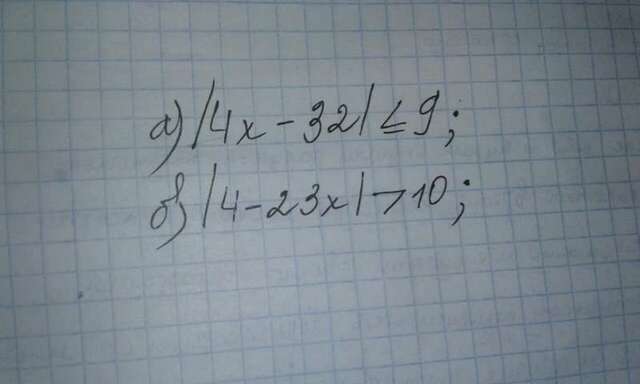 а) |4x - 32| ≤ 9;
б) |4 - 23x| > 10;